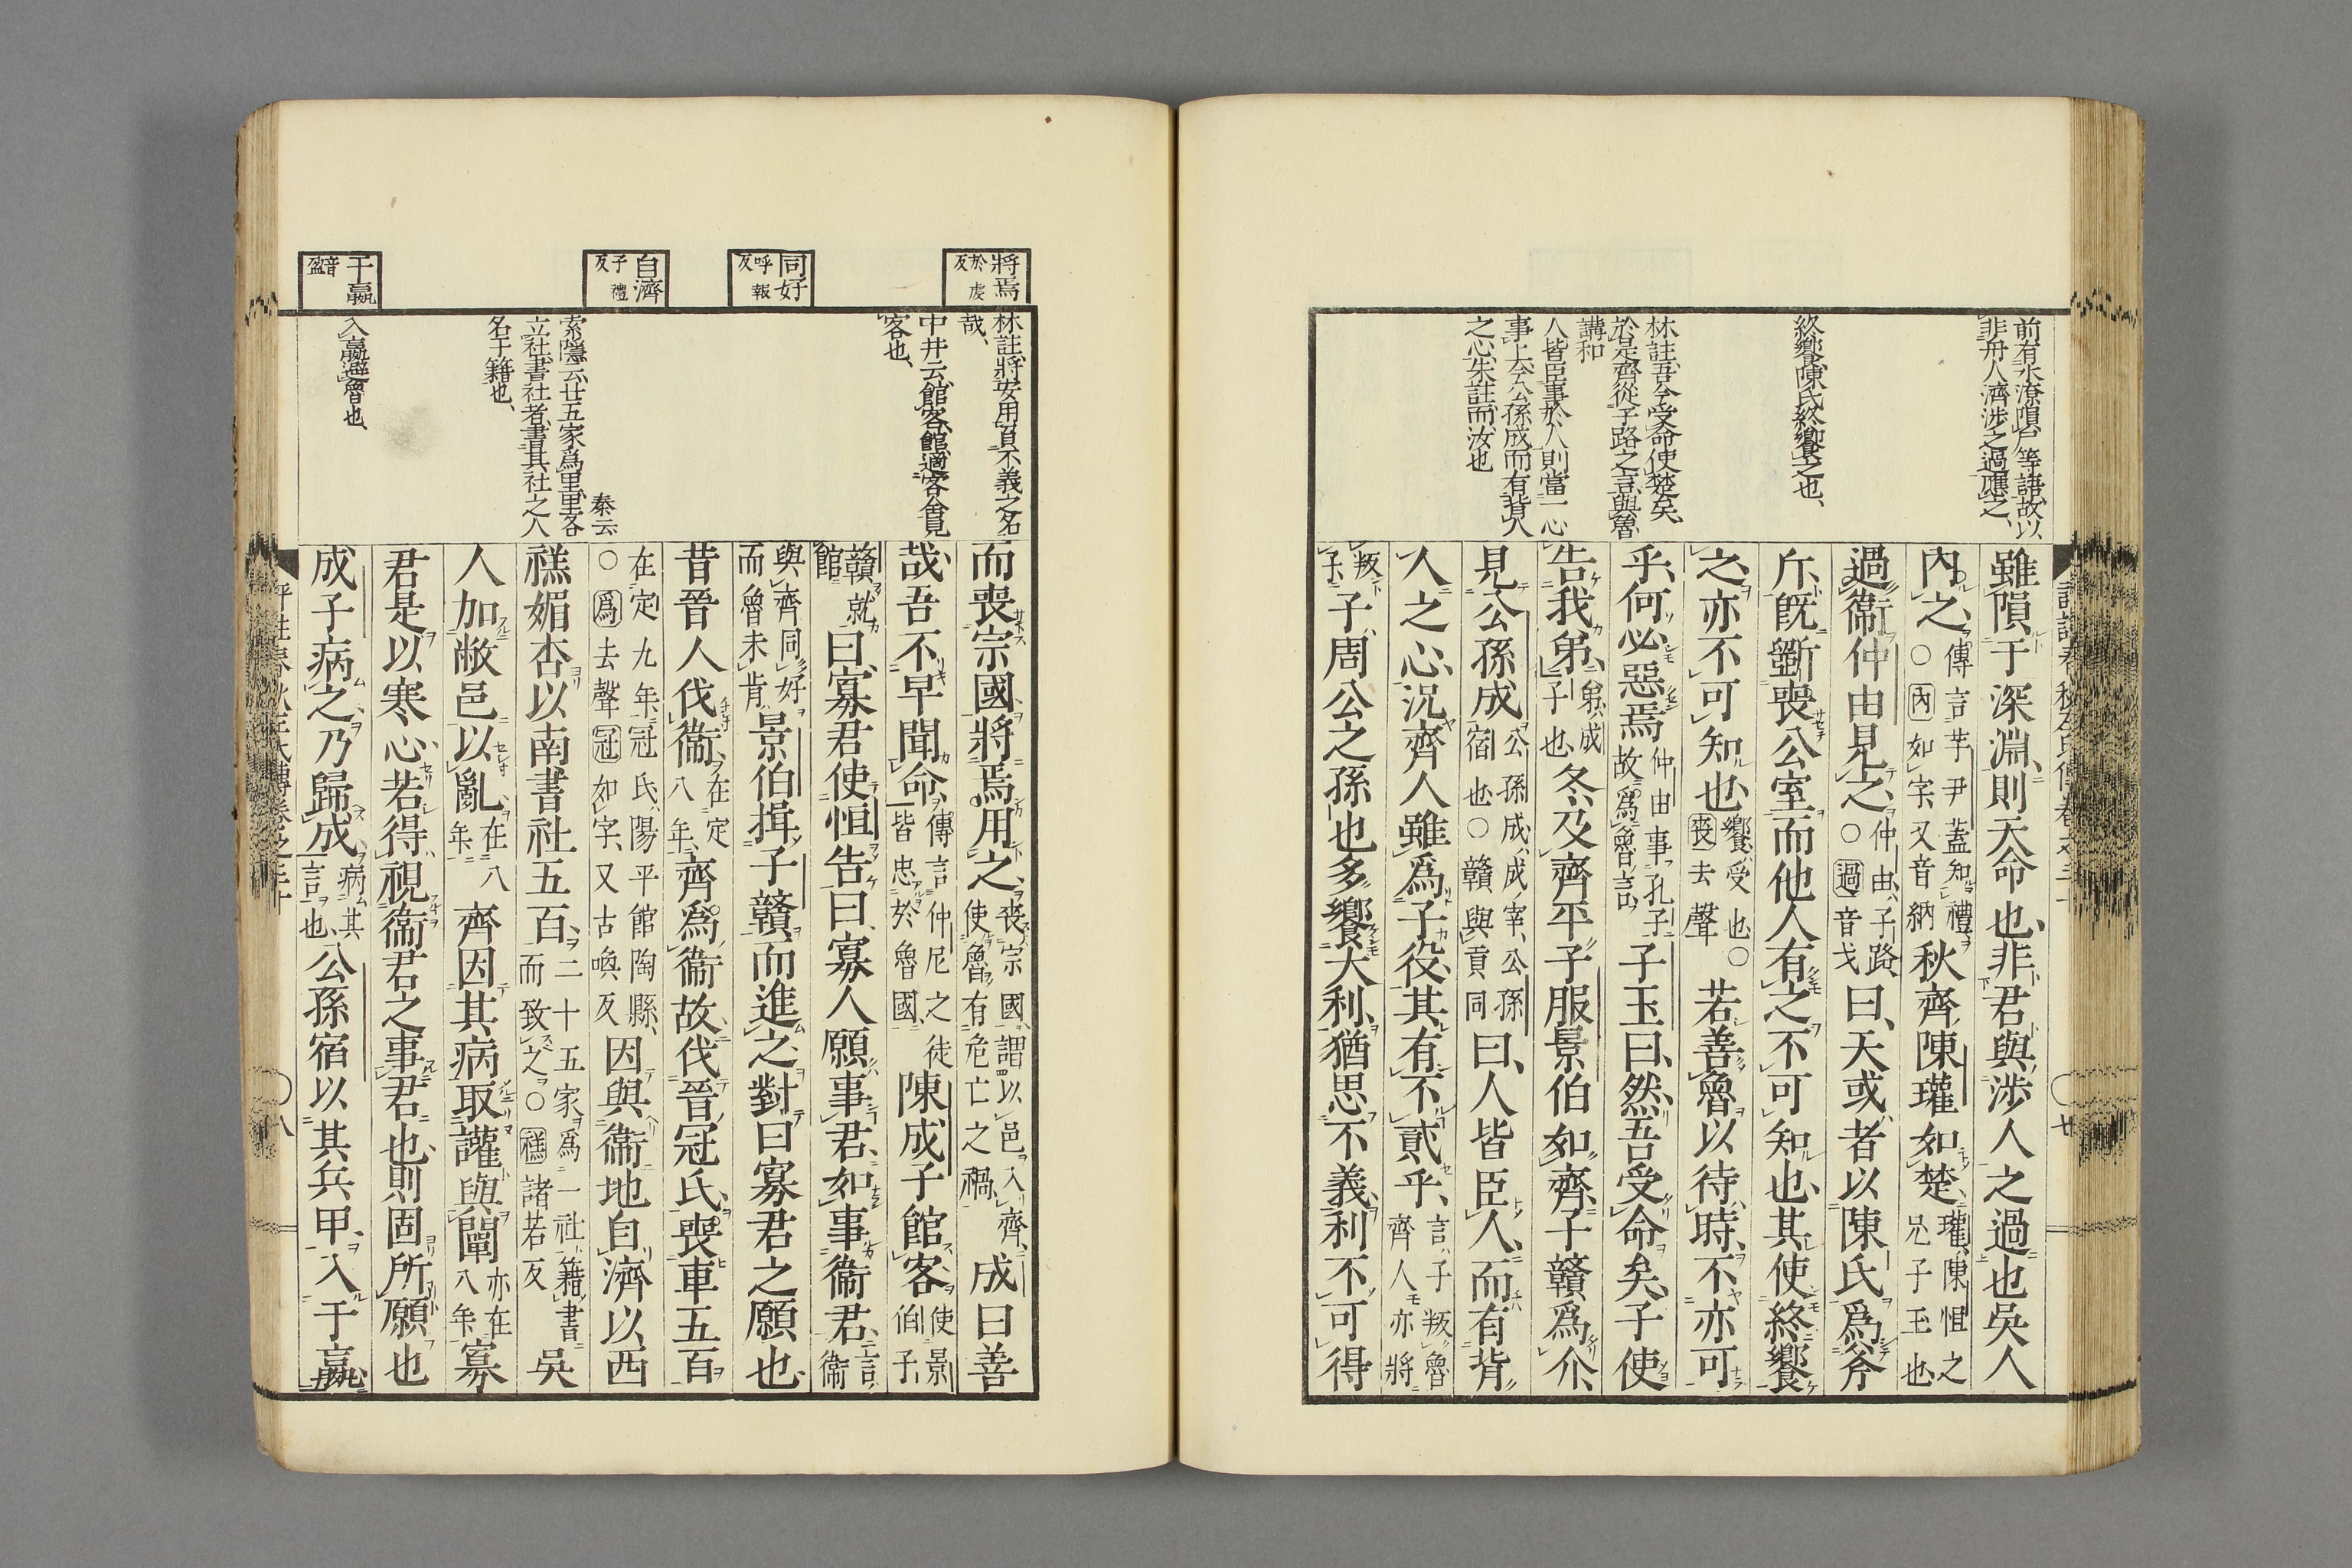 前有水潦隕尸等語故以
非舟人濟涉之過應之
終饗陳氏終饗之也
林註吾今受命使楚矣
於是齊從子路之言與魯
講和
人皆臣事於人則當一心
事上今公孫成而有背人
之心朱註而汝也
雖隕于深淵則天命也非君與涉人之過也吳人
內之傳言芋尹蓋知禮○內如字又音納秋齊陳瓘如楚瓘陳恒之兄子玉也
過衞仲由見之仲由子路○過音戈曰天或者以陳氏爲斧
斤旣斲喪公室而他人有之不可知也其使終饗
之亦不可知也饗受也○喪去聲若善魯以待時不亦可
乎何必惡焉仲由事孔子故爲魯言子玉曰然吾受命矣子使
告我弟弟成子也冬及齊平子服景伯如齊子贛爲介
見公孫成公孫成成宰公孫宿也○贛與貢同曰人皆臣人而有背
人之心況齊人雖爲子役其有不貳乎言子叛魯齊人亦將
叛子子周公之孫也多饗大利猶思不義利不可得
將焉 於虔反
同好 呼報反
自濟 子禮反
于嬴 音盈
林註將安用負不義之名
哉
中井云館客館適客舍見
客也
秦云
索隱云廿五家爲里里各
立社書社者書其社之人
名于籍也
入嬴避魯也
而喪宗國將焉用之喪宗國謂以邑入齊使魯有危亡之禍成曰善
哉吾不早聞命傳言仲尼之徒皆忠於魯國陳成子館客使景伯子
贛就館曰寡君使恒告曰寡人願事君如事衞君言衞
與齊同好而魯未肯景伯揖子贛而進之對曰寡君之願也
昔晉人伐衞在定八年齊爲衞故伐晉冠氏喪車五百
在定九年冠氏陽平館陶縣○爲去聲冠如字又古喚反因與衞地自濟以西
禚媚杏以南書社五百二十五家爲一社籍書而致之○禚諸若反吳
人加敝邑以亂在八年齊因其病取讙與闡亦在八年寡
君是以寒心若得視衞君之事君也則固所願也
成子病之乃歸成病其言也公孫宿以其兵甲入于嬴